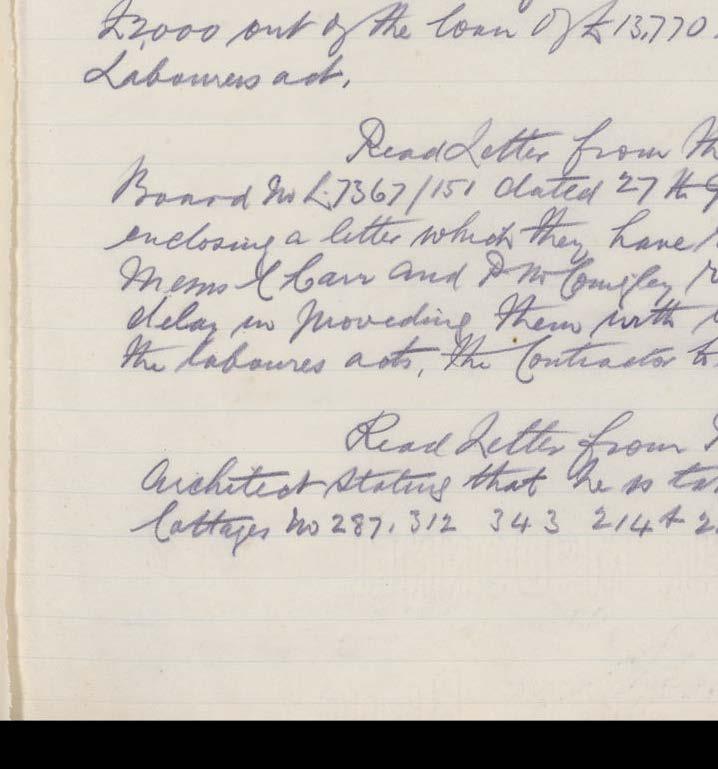 £2,000 out of the loan of £13,770
Labourers act.
Read Letter from the
Board No L.7367/151 dated 27th
enclosing a letter which they have
Messrs C Carr and P McConigley
delay in proveding them with
the laboures acts, the Contractor to
Read Letter from
Architect stating that he is
Cottages No 287, 312 343 214 &